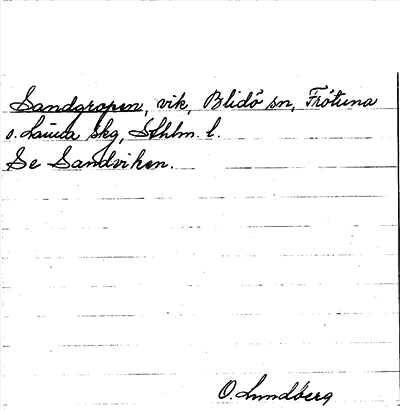 Sandgropen, vik, Blidö sn, Frötuna
o. Länna skg, Sthlm. l.
Se Sandviken.
O. Lundberg